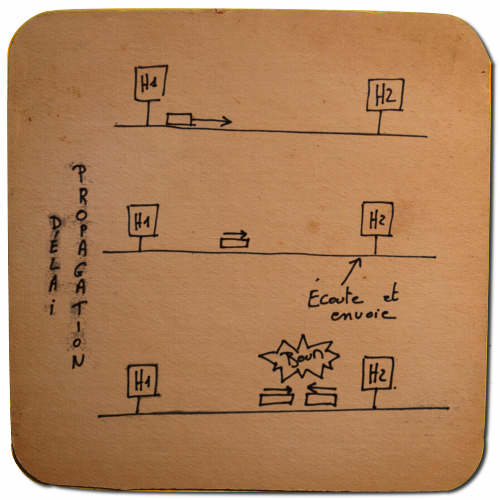 H1
H2
DELAI
PROPAGATION
H1
H2
Écoute et
envoie
Boum
H1
H2